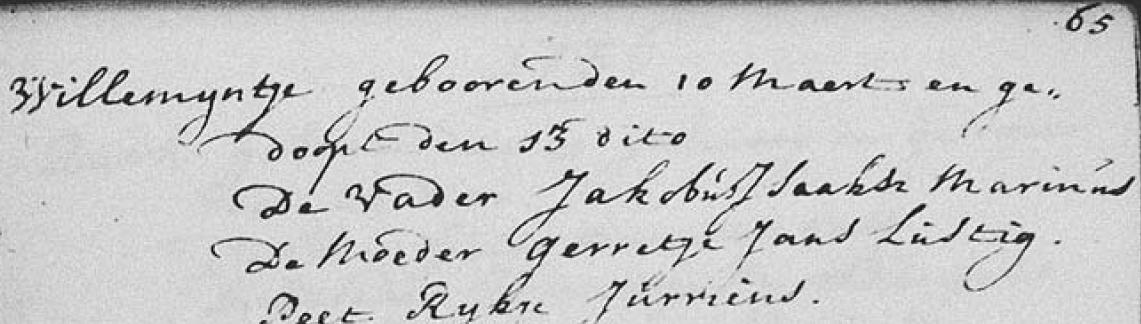 65
Willemyntje gebooren den 10 Maert en ge„
doopt den 13 dito
De Vader Jakobus Isaaksz Marinus
De Moeder Gerretje Jans Lustig.
Peet Ryksz Jurriens.